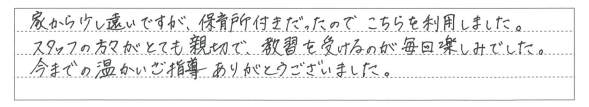 家から少し遠いですが、保育所付きだったので こちらを利用しました。
スタッフの方々がとても親切で、教習を受けるのが毎回楽しみでした。
今までの温かいご指導 ありがとうございました。